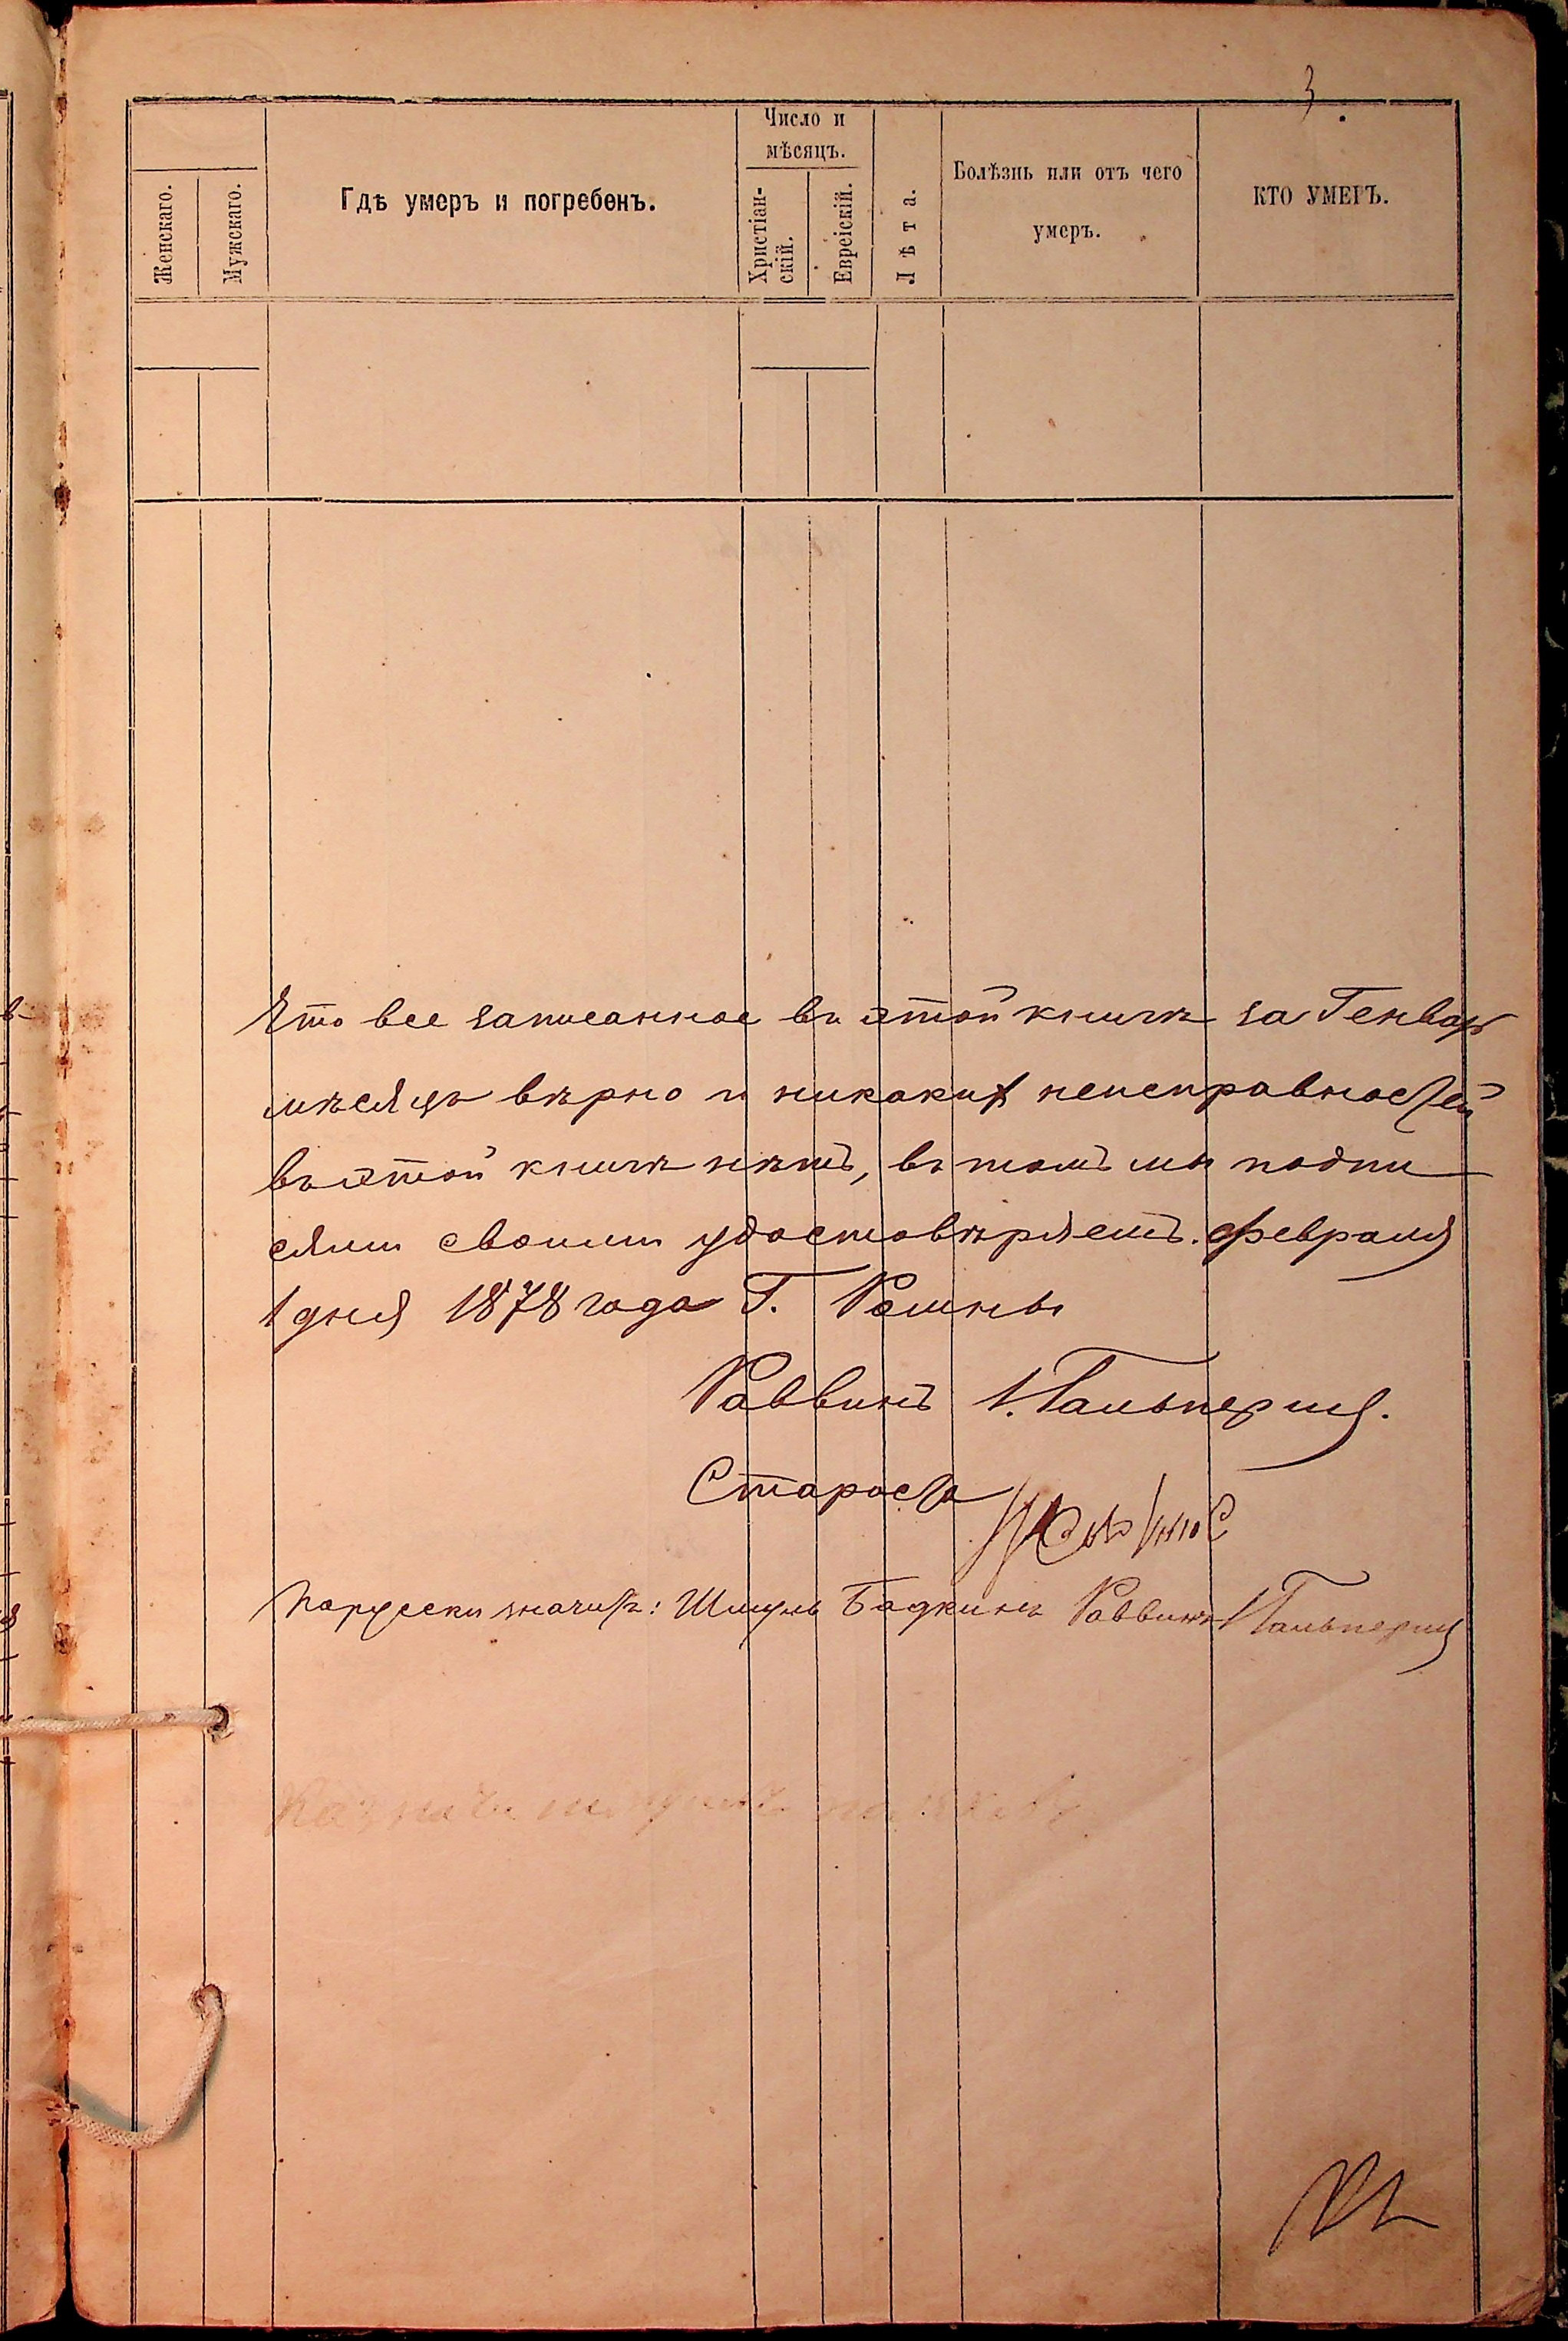 3
Число и
мѣсяцъ.
Женскаго.
Мужскаго.
Гдѣ умеръ и погребенъ.
Христіан-
скій.
Евреіскій.
Лѣта.
Болѣзнь или отъ чего
умеръ.
КТО УМЕРЪ.
Что все записанное въ этой книгѣ за Генварь
мѣсяцъ вѣрно и никаких неисправностей
въ этой книгѣ нѣтъ, въ томъ мы подпи
сями своими удостовѣряемъ. Февраля
1 дня 1878 года Г. Ромны
Раввинъ І. Гальперинъ.
Староста
По русски значитъ: Шмуль Бадкинъ Раввинъ І Гальперинъ